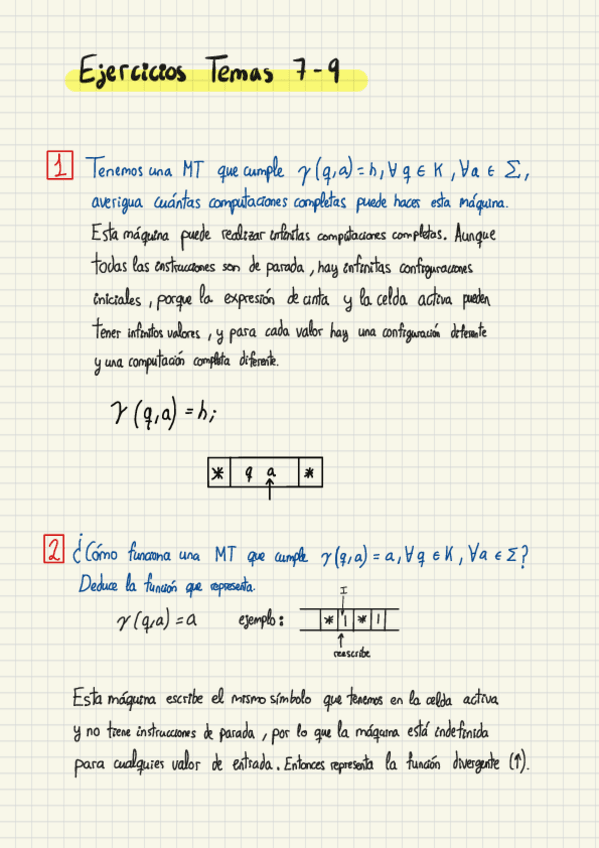 Ejercicios Temas 7-9
1 Tenemos una MT que cumple γ(q,a) = h, ∀ q ∈ K, ∀a ∈ Σ,
averigua cuántas computaciones completas puede hacer esta máquina.
Esta máquina puede realizar infinitas computaciones completas. Aunque
todas las instrucciones son de parada, hay infinitas configuraciones
iniciales, porque la expresión de cinta y la celda activa pueden
tener infinitos valores, y para cada valor hay una configuración diferente
y una computación completa diferente.
γ(q,a) = h;
* q a *
2 ¿Cómo funciona una MT que cumple γ(q,a) = a, ∀ q ∈ K, ∀a ∈ Σ?
Deduce la función que representa.
I
γ(q,a) = a ejemplo: * | * |
reescribe
Esta máquina escribe el mismo símbolo que tenemos en la celda activa
y no tiene instrucciones de parada, por lo que la máquina está indefinida
para cualquier valor de entrada. Entonces representa la función divergente (↑).